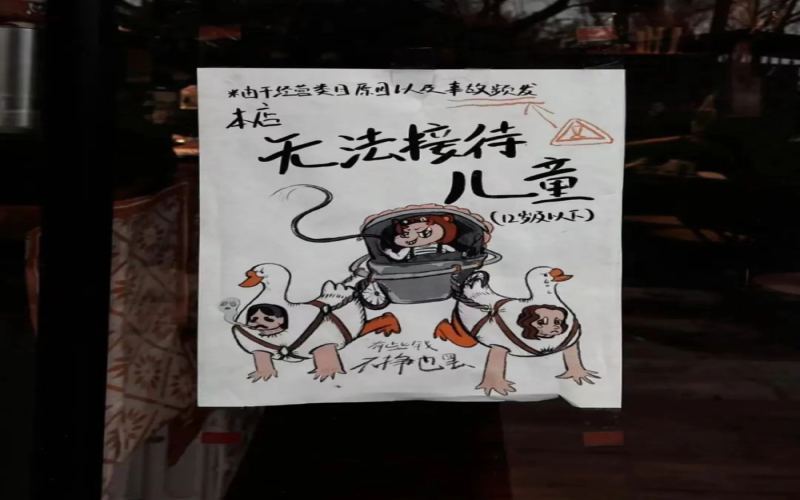 *由于经营类目原因以及事故频发
本店
无法接待
儿童
(12岁及以下)
有些钱
不挣也罢